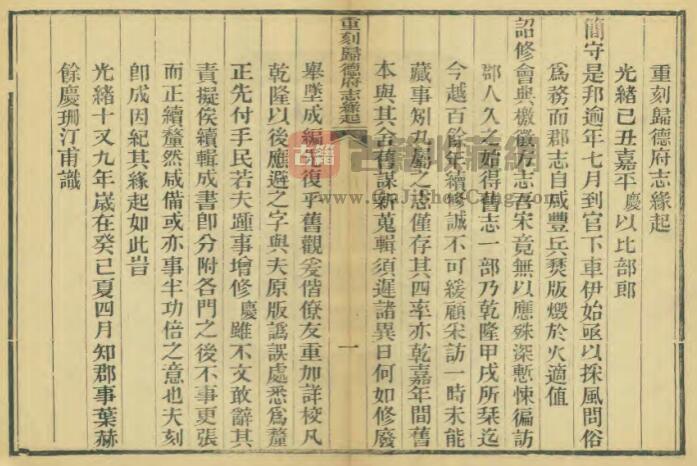 重刻歸德府志緣起
光緒己丑嘉平慶以比部郎
簡守是邦逾年七月到官下車伊始亟以採風問俗
爲務而郡志自咸豐兵燹版燬於火適值
詔修會典檄徵方志吾宋竟無以應殊深慙悚徧訪
鄀人久之始得舊志一部乃乾隆甲戌所栞迄
今越百餘年續修誠不可緩顧宋訪一時未能
蕆事矧九屬之志僅存其四率亦乾嘉年間舊
本與其合舊謀新蒐輯須遲諸異日何如修廢
重刻歸德府志緣起
一
舉墜成編復乎舊觀爰偕僚友重加詳校凡
乾隆以後應避之字與夫原版譌誤處悉爲釐
正先付手民若夫踵事增修慶雖不文敢辭其
責擬俟續輯成書卽分附各門之後不事更張
而正續釐然咸備或亦事半功倍之意也夫刻
卽成因紀其緣起如此旹
光緒十又九年歲在癸巳夏四月知郡事葉赫
餘慶珊汀甫識
古籍
古籍收藏网
www.GuJiShouCang.com